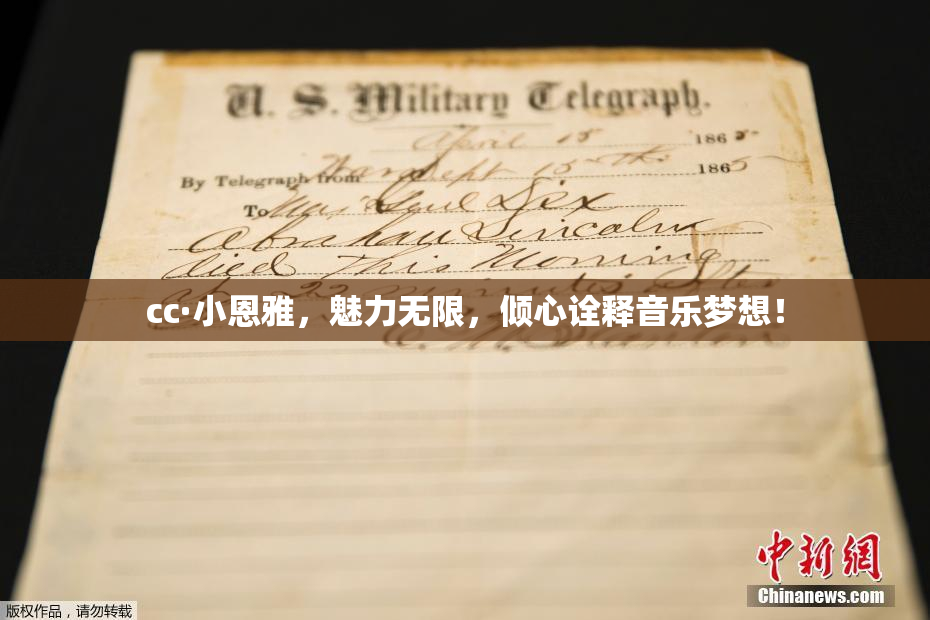 U. S. Military Telegraph.
April 15 1865
By Telegraph from War Dept 15th 1865
To Maj Genl Dix
Abraham Lincoln
died This Morning
at 22 minutes after
cc·小恩雅，魅力无限，倾心诠释音乐梦想！
E. M. Stanton
中新网
Chinanews.com
版权作品，请勿转载